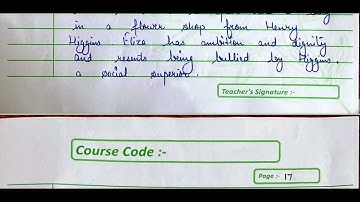 in a flower shop from Henry
Higgins Eliza has ambition and dignity
and resents being bullied by Higgins.
a social superior.
Teacher's Signature :-
Course Code :-
Page :- 17